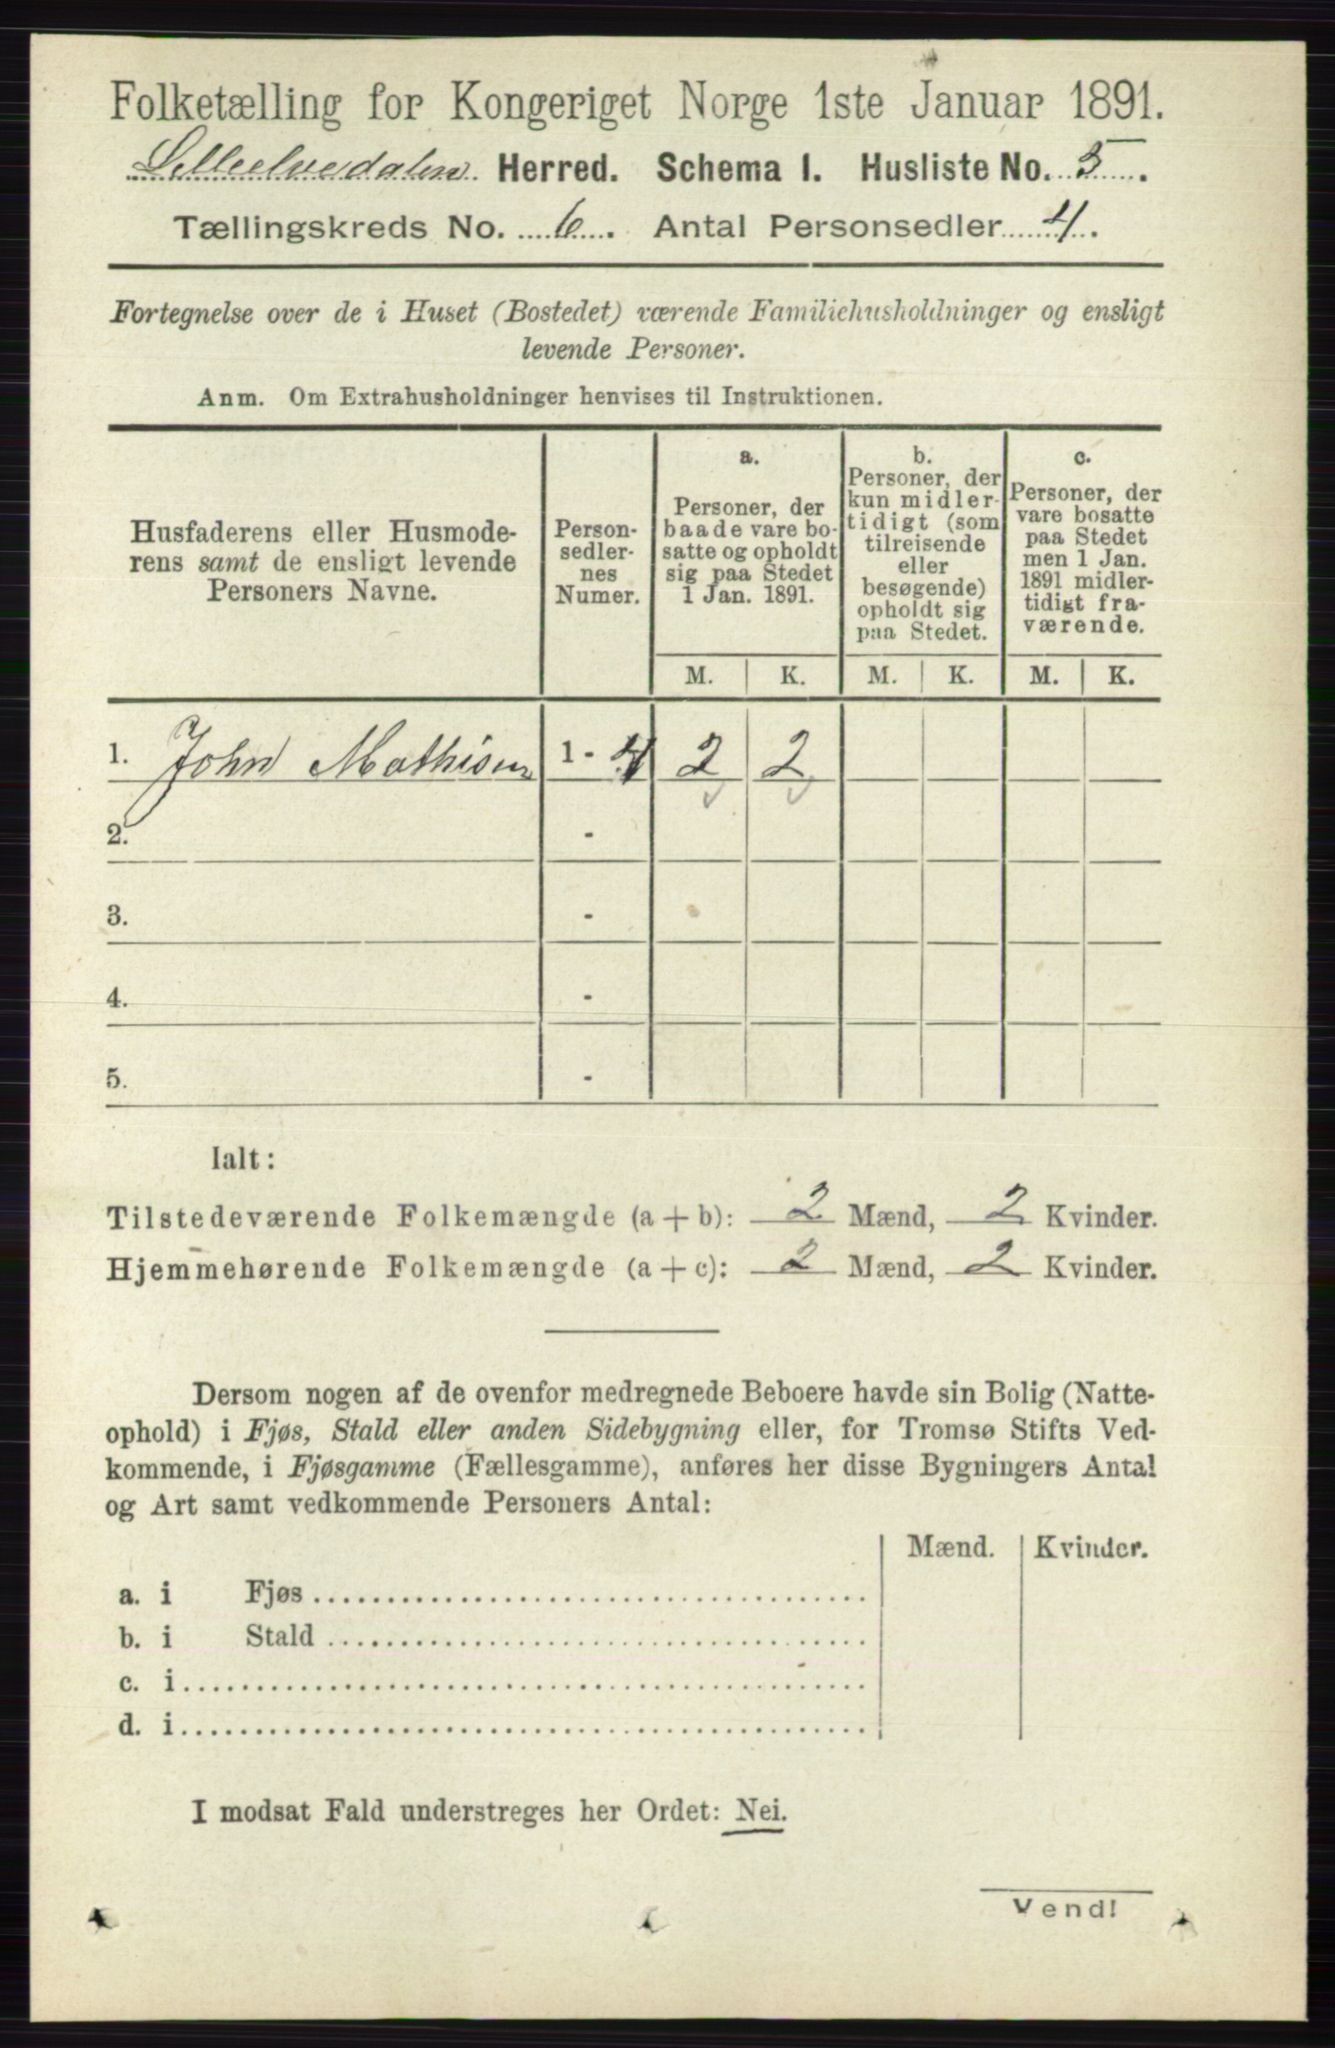 Folketælling for Kongeriget Norge 1ste Januar 1891.
Lilleelvedalen Herred. Schema 1. Husliste No. 5.
Tællingskreds No. 6. Antal Personsedler 4.
Fortegnelse over de i Huset (Bostedet) værende Familiehusholdninger og ensligt
levende Personer.
Anm. Om Extrahusholdninger henvises til Instruktionen.
Husfaderens eller Husmode-
rens samt de ensligt levende
Personers Navne.
Person-
sedler-
nes
Numer.
a.
Personer, der
baade vare bo-
satte og opholdt
sig paa Stedet
1 Jan. 1891.
b.
Personer, der
kun midler-
tidigt (som
tilreisende
eller
besøgende)
opholdt sig
paa Stedet.
c.
Personer, der
vare bosatte
paa Stedet
men 1 Jan.
1891 midler-
tidigt fra-
værende.
M. K. M. K. M. K.
1. John Mathisen 1 - 4 2 2
2. -
3. -
4. -
5. -
Ialt:
Tilstedeværende Folkemængde (a + b): 2 Mænd, 2 Kvinder.
Hjemmehørende Folkemængde (a + c): 2 Mænd, 2 Kvinder.
Dersom nogen af de ovenfor medregnede Beboere havde sin Bolig (Natte-
ophold) i Fjøs, Stald eller anden Sidebygning eller, for Tromsø Stifts Ved-
kommende, i Fjøsgamme (Fællesgamme), anføres her disse Bygningers Antal
og Art samt vedkommende Personers Antal:
Mænd. Kvinder.
a. i Fjøs
b. i Stald
c. i
d. i
I modsat Fald understreges her Ordet: Nei.
Vend!